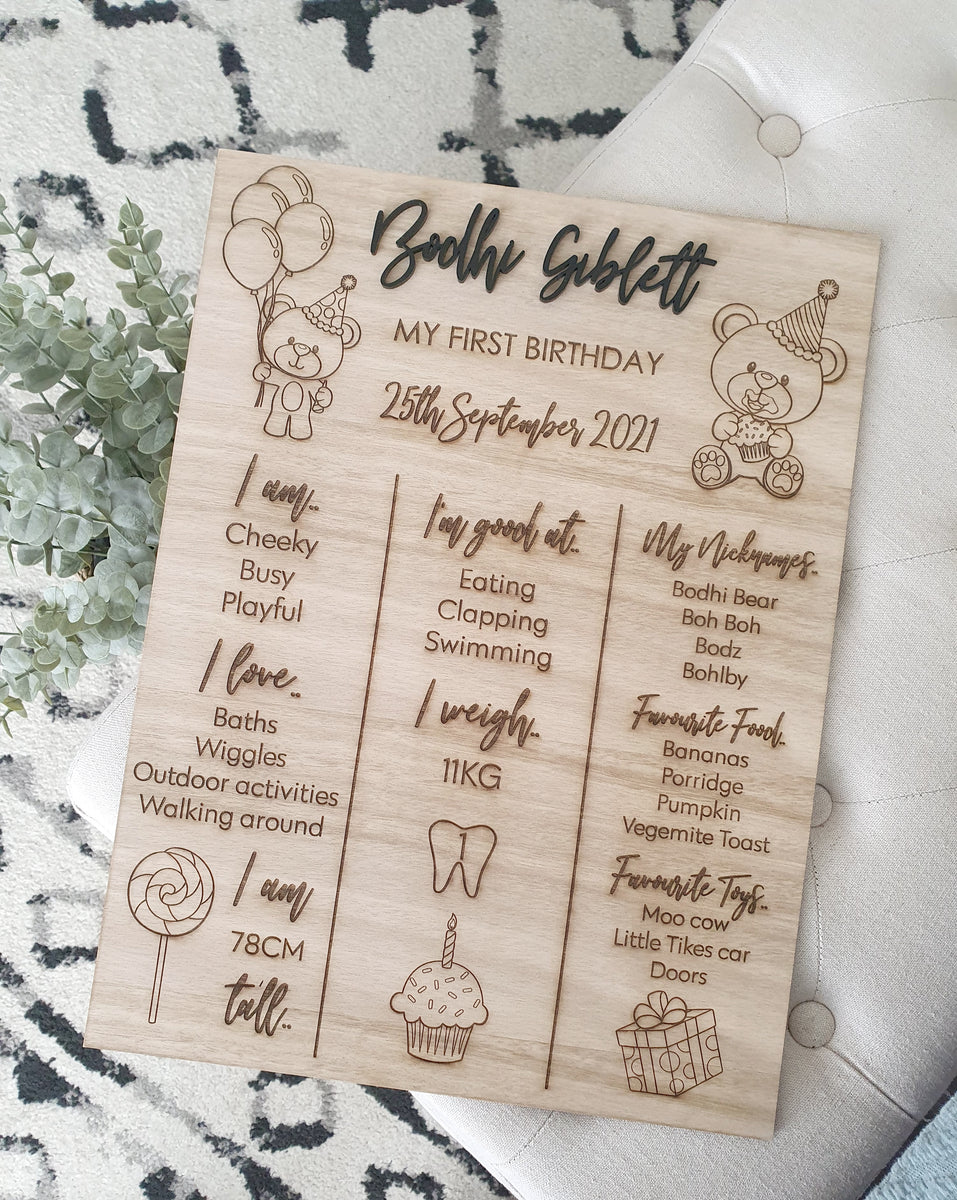 Bodhi Giblett
MY FIRST BIRTHDAY
25th September 2021
I am..
Cheeky
Busy
Playful
I love..
Baths
Wiggles
Outdoor activities
Walking around
I am
78CM
tall..
I'm good at..
Eating
Clapping
Swimming
I weigh..
11KG
1
My Nicknames..
Bodhi Bear
Boh Boh
Bodz
Bohlby
Favourite Food..
Bananas
Porridge
Pumpkin
Vegemite Toast
Favourite Toys..
Moo cow
Little Tikes car
Doors